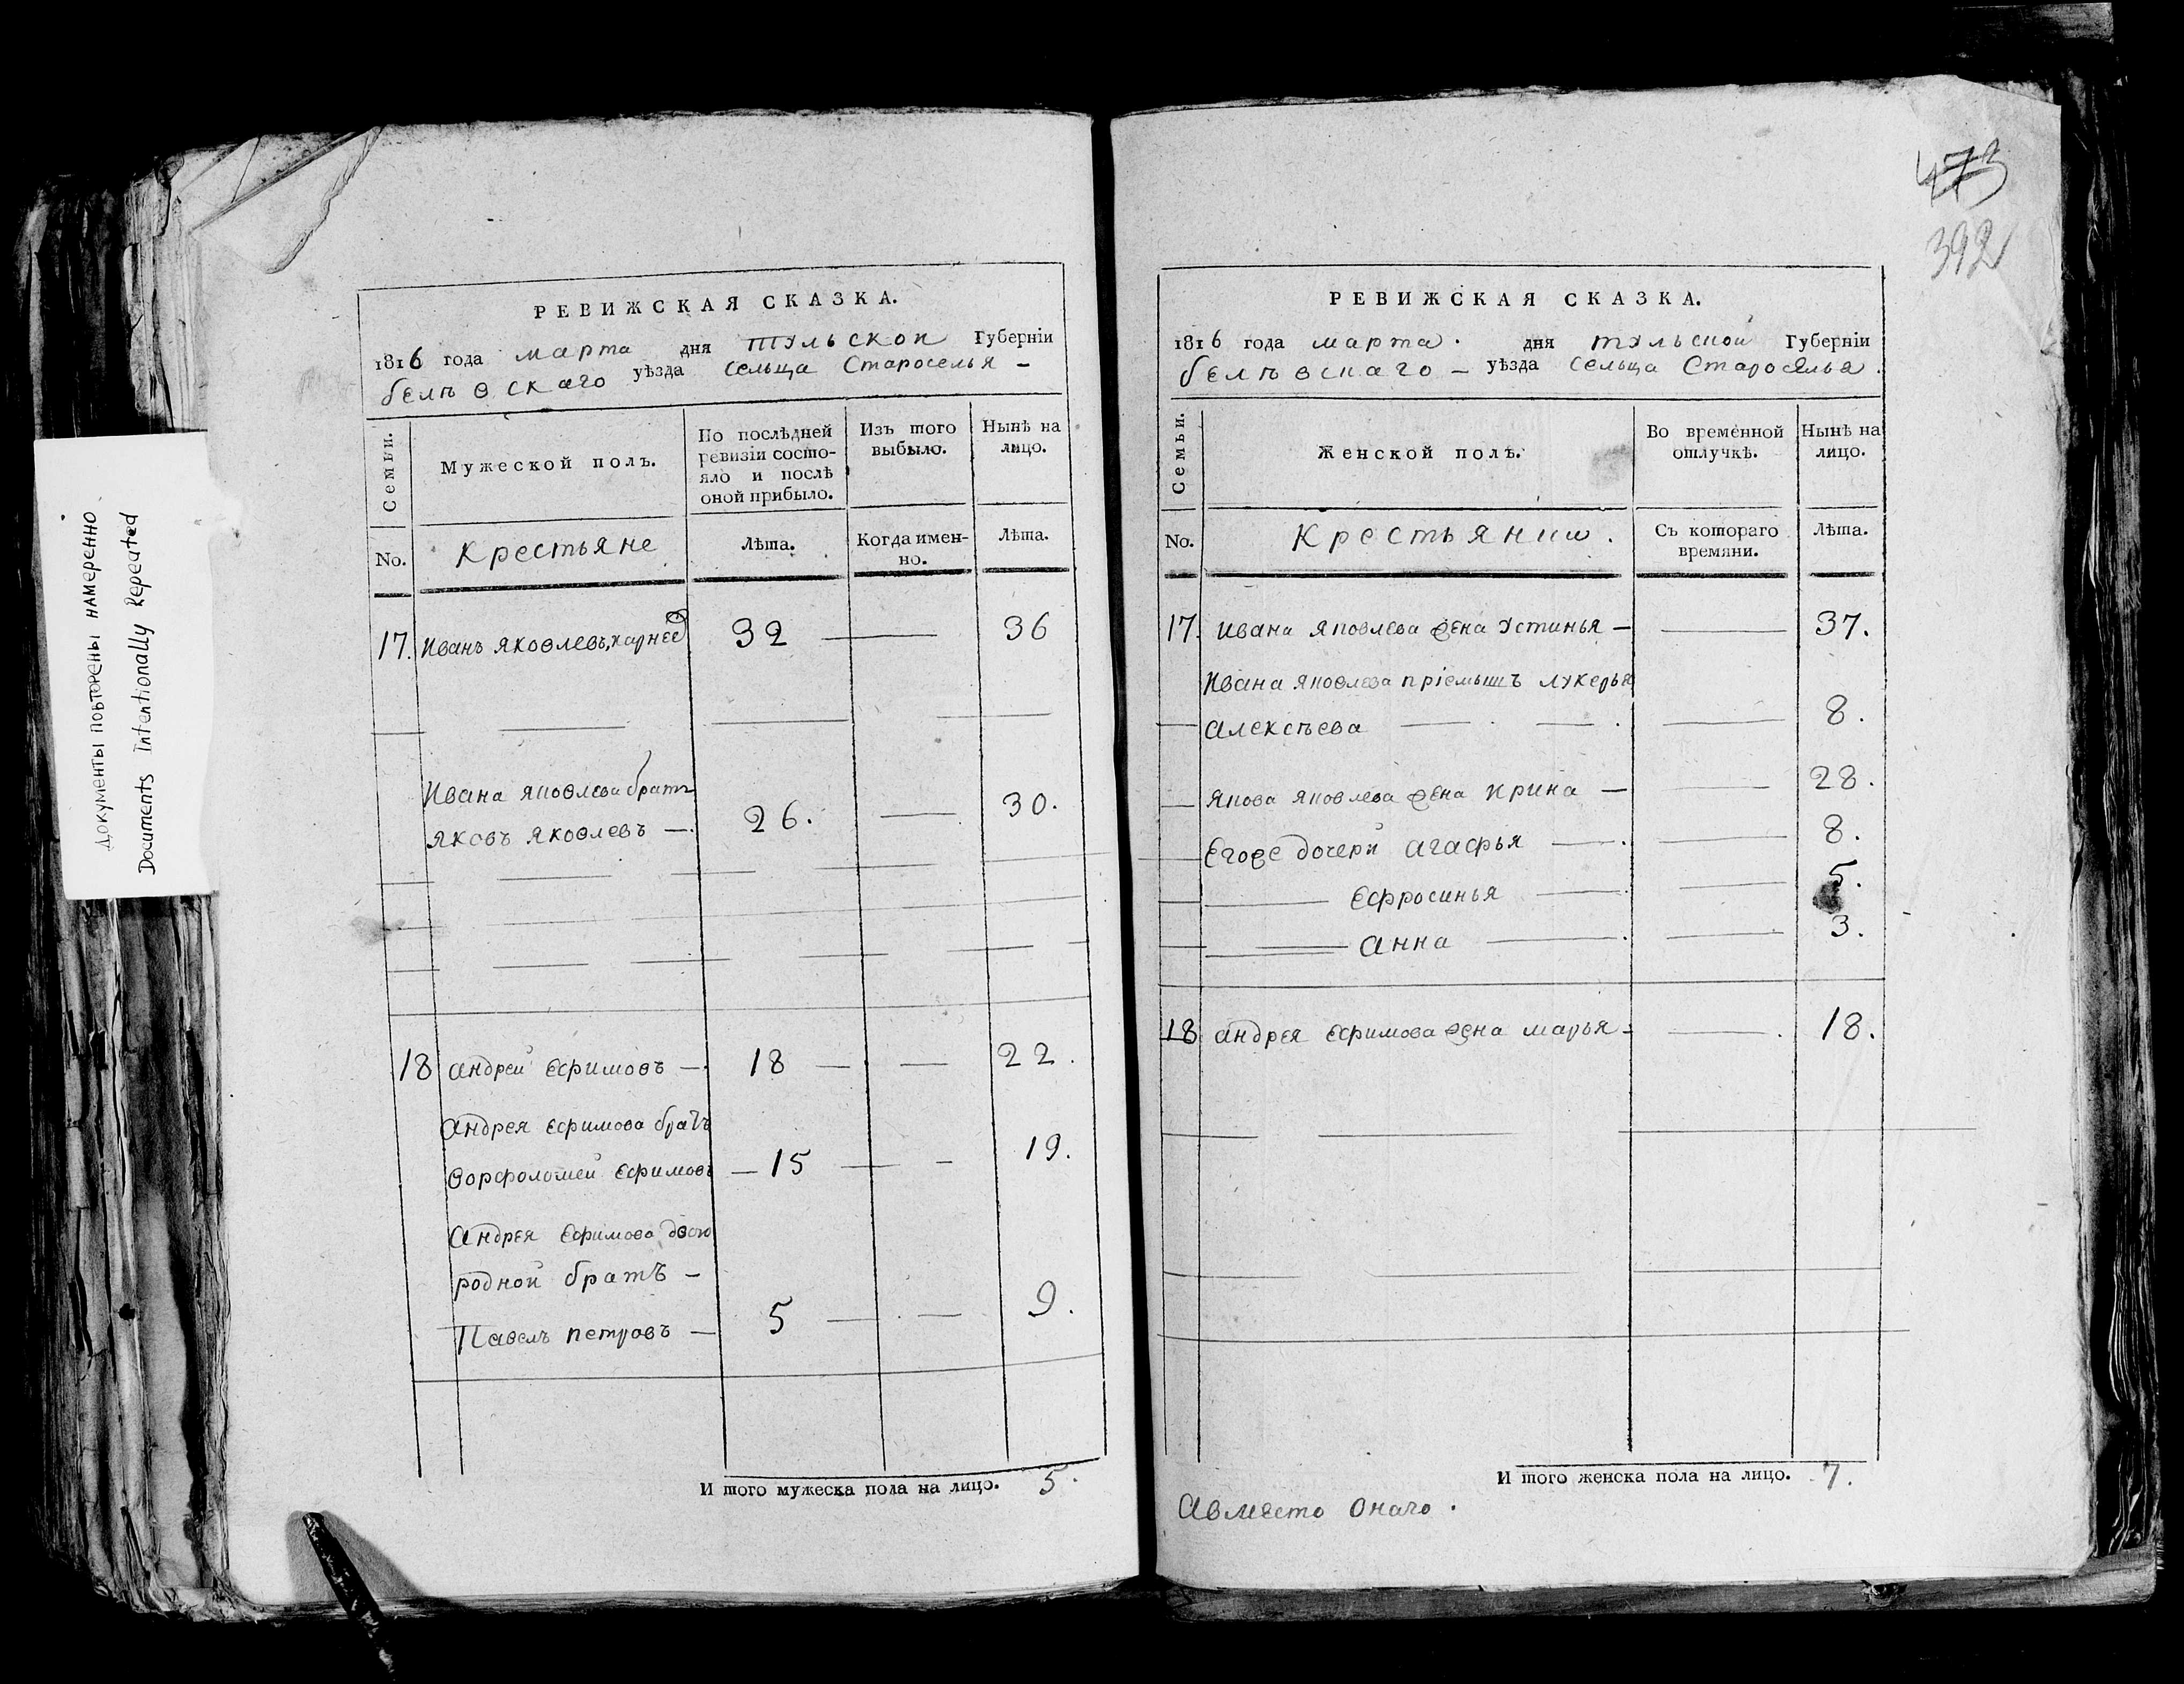 Документы повторены намеренно
Documents Intentionally Repeated
РЕВИЖСКАЯ СКАЗКА.
1816 года марта дня тульской Губерніи
белѣвскаго уѣзда сельца Староселья -
Семьи.
Мужеской полъ.
По послѣдней ревизіи состо-
яло и послѣ
оной прибыло.
Изъ того выбыло.
Нынѣ на лицо.
No.
Крестьяне
Лѣта.
Когда имен-
но.
Лѣта.
17. Иванъ Яковлевъ, 32 — 36
Ивана Яковлева братъ
Яковъ Яковлевъ — 26. — 30.
18 Андрей Ефимовъ — 18 — — 22.
Андрея Ефимова братъ
Ворфоломей Ефимовъ — 15 — - 19.
Андрея Ефимова двою
родной братъ -
Павелъ Петровъ — 5 — — 9.
И того мужеска пола на лицо. 5.
473
392
РЕВИЖСКАЯ СКАЗКА.
1816 года марта. дня тульской Губерніи
белѣвскаго — уѣзда сельца Староселья.
Семьи.
Женской полъ.
Во временной
отлучкѣ.
Нынѣ на
лицо.
No.
Крестьянки.
Съ котораго
времяни.
Лѣта.
17. Ивана Яковлева жена Устинья — — 37.
Ивана Яковлева пріемышъ Лукерья
Алексѣева — — — 8.
Якова Яковлева жена Ирина — — 28.
Егоже дочери Агафья — — 8.
Ефросинья — — 5.
Анна — — 3.
18 Андрея Ефимова жена Марья - — 18.
И того женска пола на лицо. 7.
Авместо онаго.